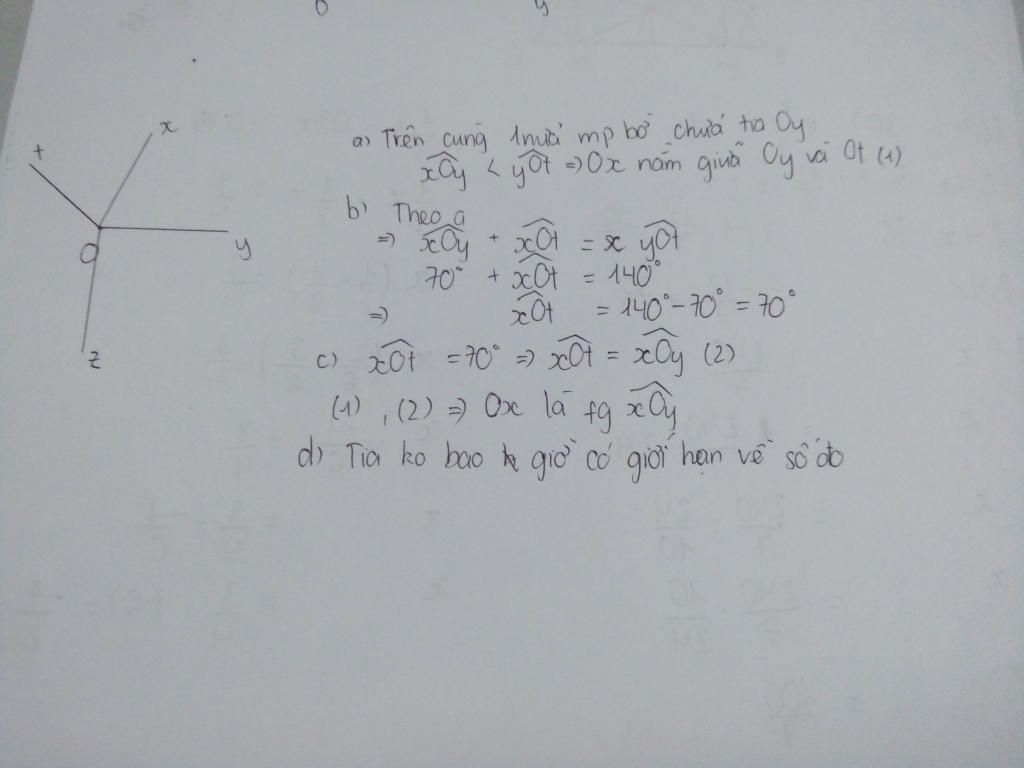 O y
x
t
O
y
z
a) Trên cùng 1 nửa mp bờ chứa tia Oy:
xOy < yOt => Ox nằm giữa Oy và Ot (1)
b) Theo a
=> xOy + xOt = yOt
70° + xOt = 140°
=> xOt = 140° - 70° = 70°
c) xOt = 70° => xOt = xOy (2)
(1), (2) => Ox là fg xOy
d) Tia ko bao giờ có giới hạn về số đo